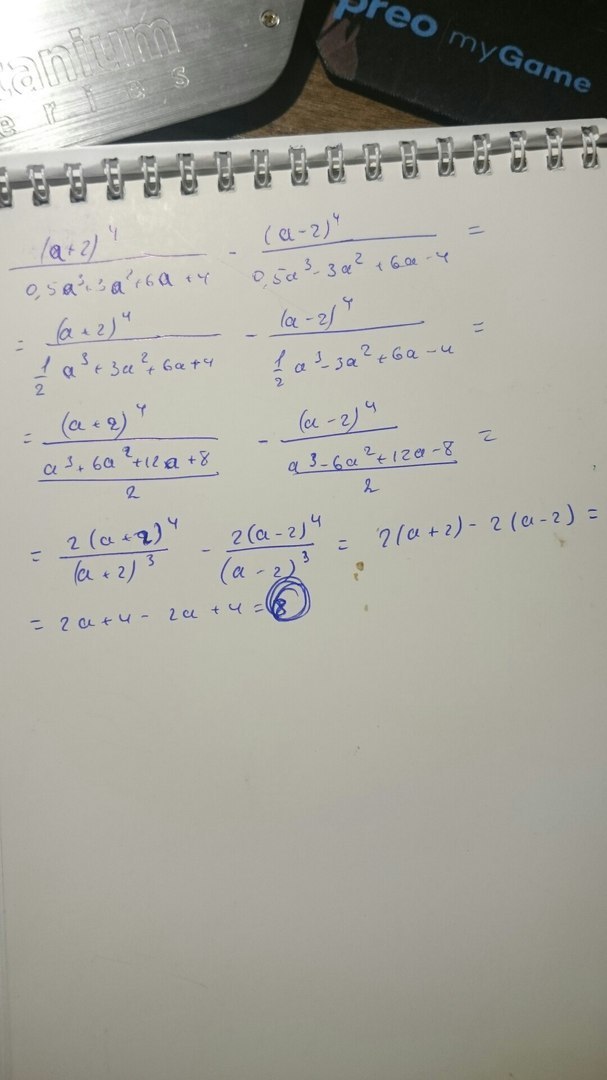 tanium
eries
preo myGame
(a+2)^4 / (0,5a^3+3a^2+6a+4) - (a-2)^4 / (0,5a^3-3a^2+6a-4) =
= (a+2)^4 / (1/2 a^3+3a^2+6a+4) - (a-2)^4 / (1/2 a^3-3a^2+6a-4) =
= (a+2)^4 / ((a^3+6a^2+12a+8) / 2) - (a-2)^4 / ((a^3-6a^2+12a-8) / 2) =
= 2(a+2)^4 / (a+2)^3 - 2(a-2)^4 / (a-2)^3 = 2(a+2)-2(a-2) =
= 2a+4-2a+4=8